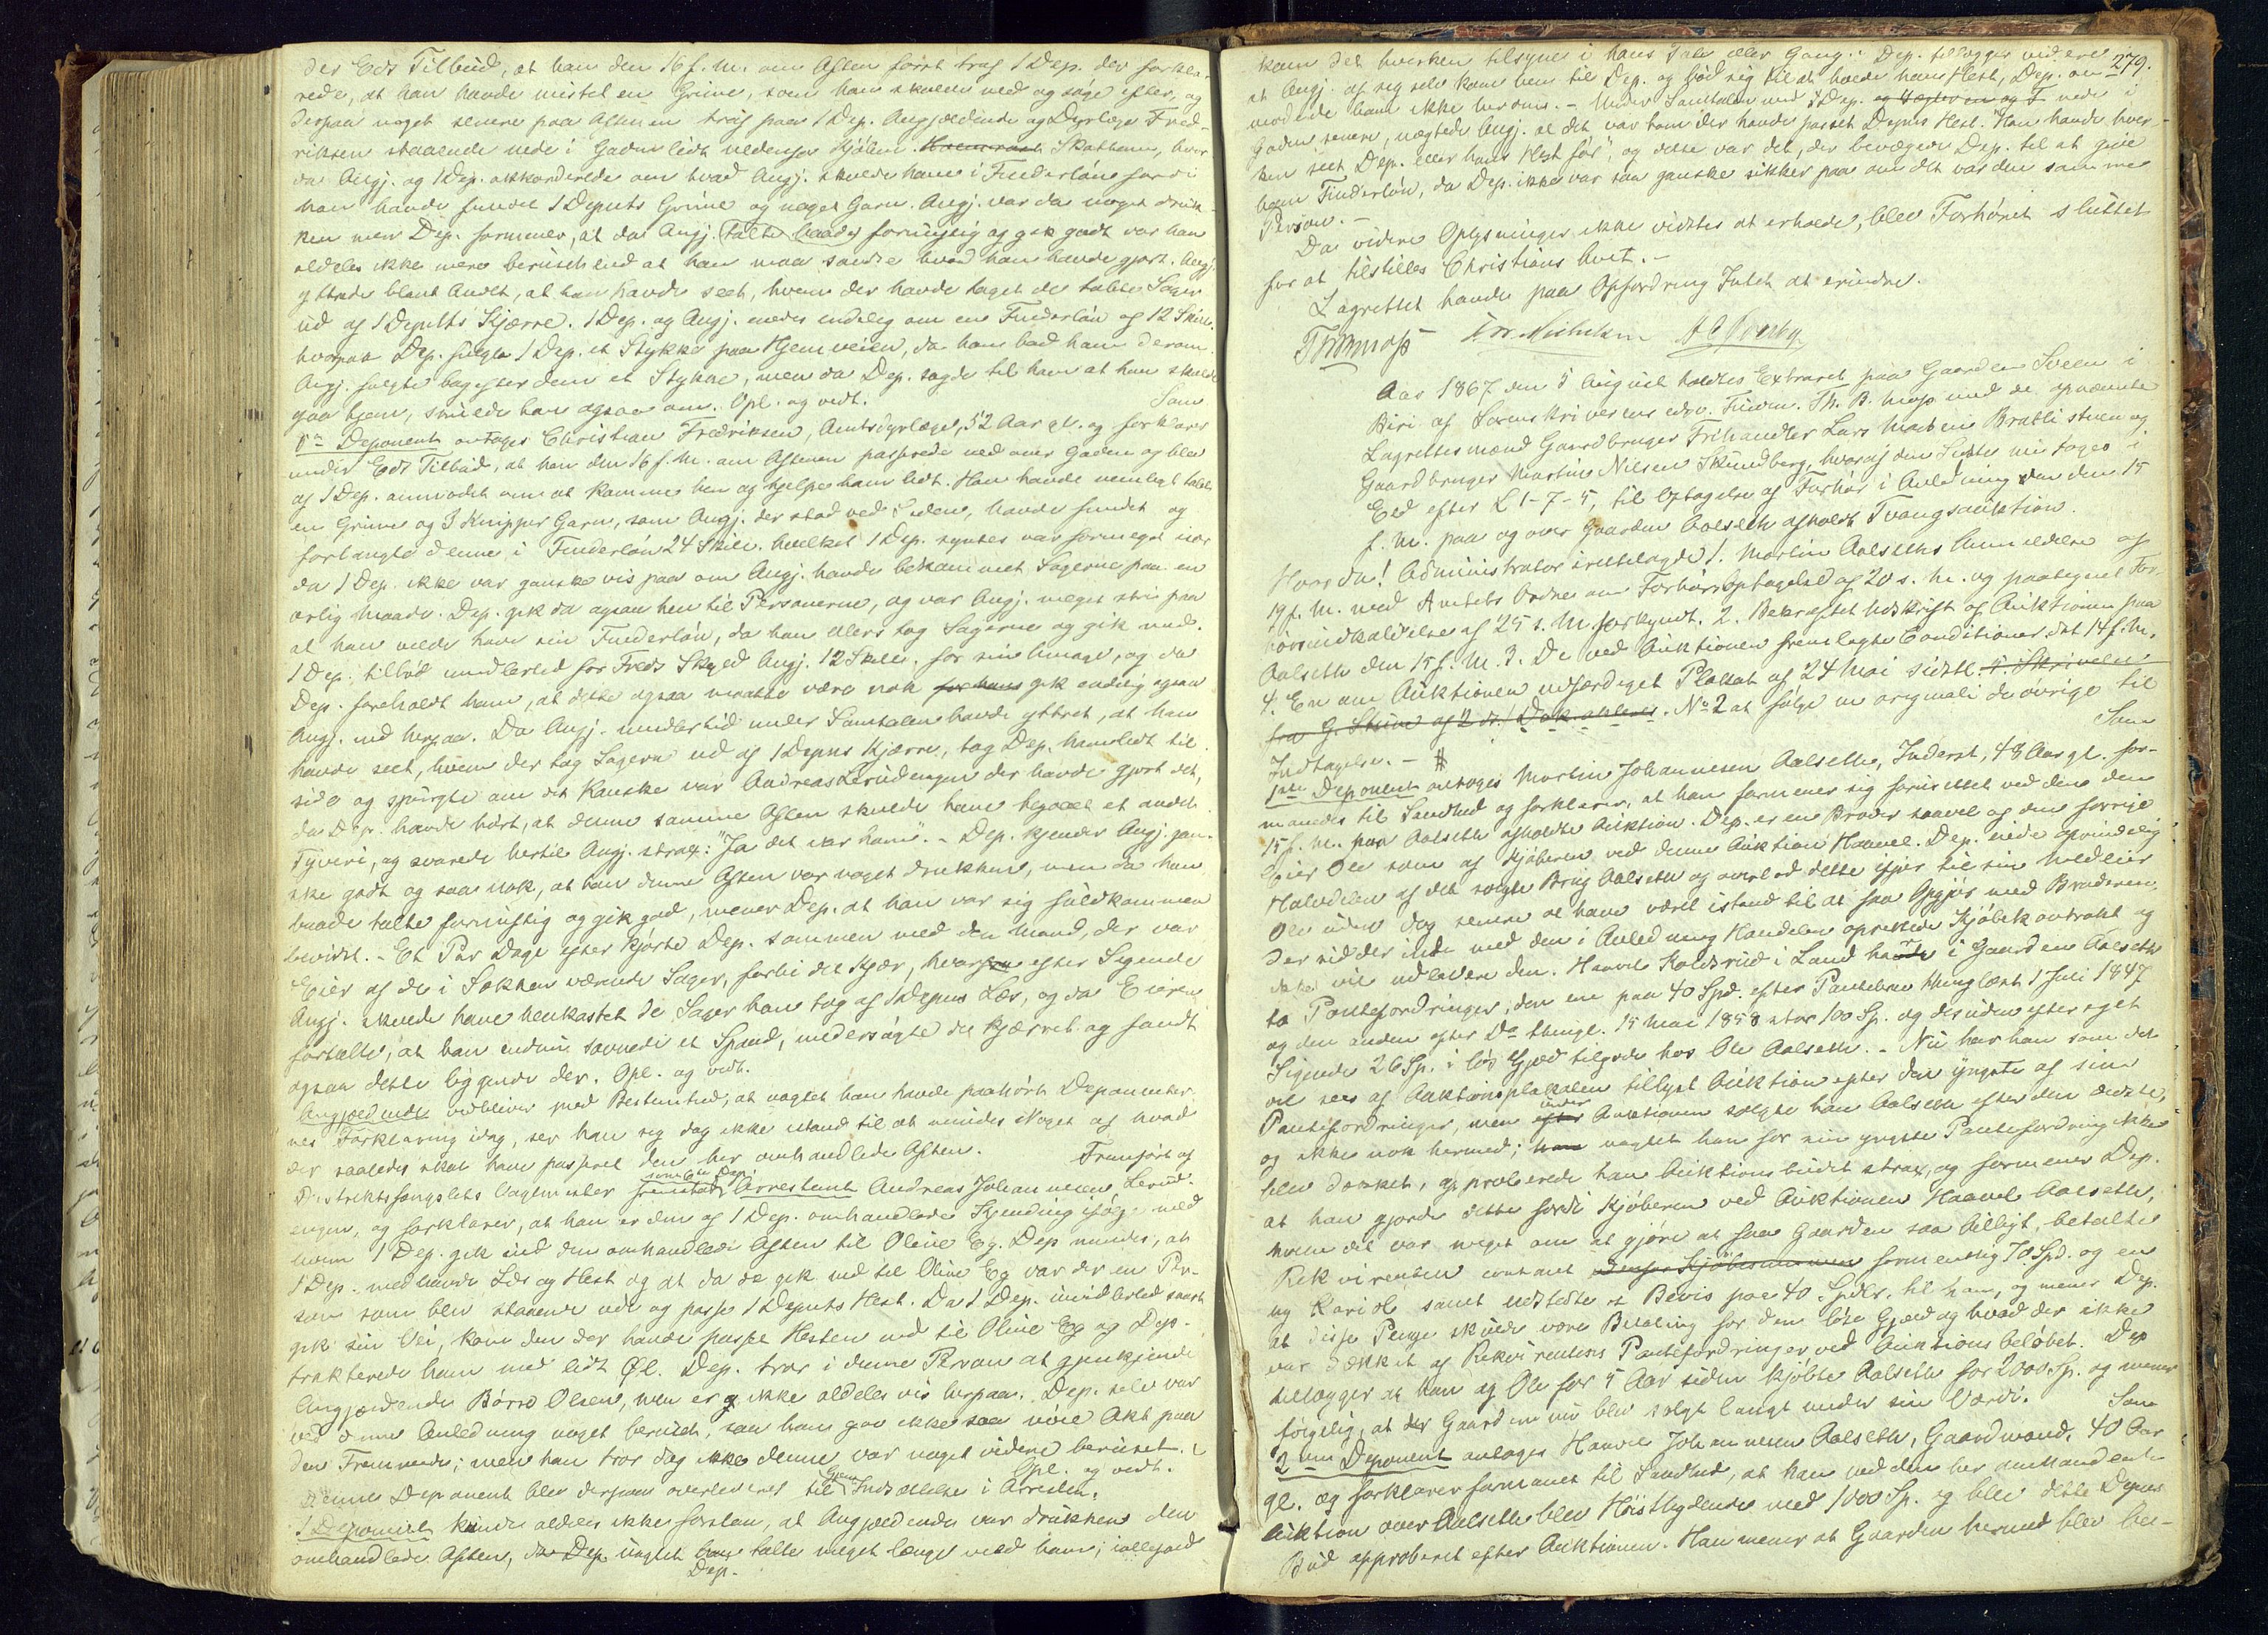 der Eds Tilbud, at han den 16 f. M. om Aften først traf 1 Dep. der forkla-
rede, at han havde mistet en Grime, som han skulde ned og søge efter, og
derpaa noget senere paa Aftenen traf paa 1 Dep. Angjældende og Dyrlæge Fred-
riksen staaende nede i Gaden lidt nedenfor Skattum, hvor
da Angj. og 1 Dep. akkorderede om hvad Angj. skulde have i Finderløn fordi
han havde fundet 1 Deputs Grime og noget Garn. Angj. var da noget druk-
ken men Dep. formener, at da Angj. talte baade fornuftig og gik godt var han
aldeles ikke mere beruset end at han maa sandse hvad han havde gjort. Angj.
yttrede blandt Andet, at han havde seet, hvem der havde taget de tabte Sager
ud af 1 Deputs Kjærre. 1 Dep. og Angj. enedes endelig om en Finderløn af 12 Skill.
hvorpaa Dep. fulgte 1 Dep. et Stykke paa Hjemveien, da han bad ham derom.
Angj. fulgte bagefter dem et Stykke, men da Dep. sagde til ham at han skulde
gaa hjem, snudde han ogsaa om. Opl. og vedt. Som
5te Deponent antages Christian Fredriksen, Amtsdyrlæge, 52 Aar gl. og forklarer
under Eds Tilbud, at han den 16 f. M. om Aftenen passerede ned over Gaden og blev
af 1 Dep. anmodet om at komme hen og hjelpe ham lidt. Han havde nemligt tabt
en Grime og 3 Knipper Garn, som Angj. der stod ved Siden, havde fundet og
forlangte denne i Finderløn 24 Skill. hvilket 1 Dep. syntes var formeget især
da 1 Dep. ikke var ganske vis paa om Angj. havde bekommet Sagerne paa en
ærlig Maade. Dep. gik da ogsaa hen til Personerne, og var Angj. meget stri paa
at han vilde have sin Finderløn, da han ellers tog Sagerne og gik med.
1 Dep. tilbød imidlertid for Freds Skyld Angj. 12 Skill. for sin Umage, og da
Dep. foreholdt ham, at dette ogsaa maatte være nok for ham gik endelig ogsaa
Angj. ind herpaa. Da Angj. imidlertid under Samtalen havde yttret, at han
havde seet, hvem der tog Sagerne ud af 1 Depns Kjærre, tog Dep. ham lidt til
side og spurgte om det kanske var Andreas Lerudengen der havde gjort det,
da Dep. havde hørt, at denne samme Aften skulde have begaaet et andet
Tyveri, og svarede hertil Angj. strax: "Ja det var ham". - Dep. kjender Angj. gan-
ske godt og saa nok, at han denne Aften var noget drukken, men da han
baade talte fornuftig og gik god, mener Dep. at han var sig fuldkommen
bevidst. - Et Par Dage efter kjørte Dep. sammen med den Mand, der var
Eier af de i Sækken værende Sager, forbi det Kjær, hvor efter Sigende
Angj. skulde have henkastet de Sager han tog af 1 Depns Læs, og da Eieren
fortalte, at han endnu savnede et Spand, undersøgte de Kjærret og fandt
ogsaa dette liggende der. Opl. og vedt.
Angjældende vedbliver med Bestemthed, at uagtet han havde paahørt Deponenter-
nes Forklaring idag, ser han sig dog ikke istand til at mindes Noget af hvad
der saaledes skal have passeret den her omhandlede Aften. Fremført af
Distriktsfængslets Vagtmester fremstod som 6te Dep. Arrestant Andreas Johannesen Lerud-
engen, og forklarer, at han er den af 1 Dep. omhandlede Kjending ifølge med
hvem 1 Dep. gik ind den omhandlede Aften til Oline Eg. Dep mindes, at
1 Dep. medhavde Læs og Hest og at da de gik ind til Oline Eg var der en Per-
son som blev staaende ude og passe 1 Deputs Hest. Da 1 Dep. imidlertid snart
gik sin Vei, kom den der havde passet Hesten ind til Oline Eg og Dep.
trakterede ham med lidt Øl. Dep. tror i denne Person at gjenkjende
Angjældende Børre Olsen, men er ikke aldeles vis herpaa. Dep. selv var
ved denne Anledning noget beruset, saa han gav ikke saa nøie Akt paa
den Fremmede; men han tror dog ikke denne var noget videre beruset.
Opl. og vedt.
Denne Deponent blev derpaa overleveret til Gjenindsættelse i Arresten.
1 Deponent kunde aldeles ikke forstaa, at Angjældende var drukken den
omhandlede Aften, da Dep uagtet han talte meget længe med ham; iallefald
Dep.
kom det hverken tilsyne i hans Tale eller Gang. Dep. tillægger videre
279.
at Angj. af sig selv kom hen til Dep. og bød sig til at holde hans Hest, Dep. an-
modede ham ikke herom. - Under Samtalen med Dep. nede i
Gaden senere, nægtede Angj. at det var ham der havde passet Depns Hest. "Han havde hver-
ken seet Dep. eller hans Hest før", og dette var det, der bevægede Dep. til at give
ham Finderløn, da Dep. ikke var saa ganske sikker paa om det var den samme
Person. -
Da videre Oplysninger ikke vidstes at erholde, blev Forhøret sluttet
for at tilstilles Christians Amt. -
Lagrettet havde paa Opfordring Intet at erindre.
Th B Moss
Aar 1867 den 5 August holdtes Extraret paa Gaarden Sveen i
Biri af Sorenskriverens edsv. Fuldm. Th. B. Moss med de opnævnte
Lagrettesmænd Gaardbruger Frihandler Lars Madsen Bratlistuen og
Gaardbruger Martin Nilsen Skundberg, hvoraf den Sidste nu toges i
Eed efter L 1-7-5, til Optagelse af Forhør i Anledning den den 15
f. M. paa og over Gaarden Aalseth afholdt Tvangsauktion.
Hvorda! Administrator irettelagde 1. Martin Aalseths Anmeldelse af
19 f. M. med Amtets Ordre om Forhørsoptagelse af 20 s. M. og paategnet For-
hørsindkaldelse af 25 s. M. forkyndt. 2. Bekræftet Udskrift af Auktionen paa
Aalseth den 15 f. M. 3. De ved Auktionen fremlagte Conditioner, dat 14 f. M.
4. En om Auktionen udfærdiget Plakat af 24 Mai sidstl. 5. Skrivelse
fra G. af 2 ds. No 2 at følge in originali de øvrige til
Indtagelse. - # Som
1ste Deponent antoges Martin Johannesen Aalseth, Inderst, 48 Aar gl. for-
manedes til Sandhed og forklarer, at han formener sig forurettet ved den den
15 f. M. paa Aalseth afholdte Auktion. Dep. er en Broder saavel af den forrige
Eier Ole som af Kjøberen ved denne Auktion Haavel. Dep. eiede oprindelig
Halvdelen af det solgte Brug Aalseth og overlod dette Eier til sin Medeier
Ole uden dog senere at have været istand til at faa Opgjør med Broderen,
der sidder inde med den i Anledning Handelen oprettede Kjøbekontrakt og
ikke vil udlevere den. Haavel Koldsrud i Land har i Gaarden Aalseth
to Pantefordringer, den ene paa 40 Spd. efter Pantebrev thinglæst 1 Juli 1847
og den anden efter Do thingl. 15 Mai 1858 stor 100 Sp. og desuden efter eget
Sigende 26 Sp. i løs Gjæld tilgode hos Ole Aalseth. - Nu har han som det
vil sees af Auktionsplakaten tillyst Auktion efter den yngste af sine
Pantefordringer, men efter under Auktionen solgte han Aalseth efter den ældste,
og ikke nok hermed; han uagtet han for sin yngste Pantefordring ikke
blev dækket, approberede han Auktionsbudet strax, og formener Dep.
at han gjorde dette fordi Kjøberen ved Auktionen Haavel Aalseth,
hvem det var meget om at gjøre at faa Gaarden saa billigt, betalte
Rekvirenten contant formentlig 70 Spd. og en
ny Kariol samt udstedte et Bevis paa 40 Spdlr. til ham, og mener Dep.
at disse Penge skulde være Betaling for den løse Gjæld og hvad der ikke
var dækket af Rekvirentens Pantefordringer ved Auktionsbeløbet. Dep
tillægger at han og Ole for 5 Aar siden kjøbte Aalseth for 2000 Sp. og mener
følgelig, at der Gaarden nu blev solgt langt under sin Værdi. Som
2den Deponent antoges Haavel Johannesen Aalseth, Gaardmand, 40 Aar
gl. og forklarer formanet til Sandhed, at han ved den her omhandlede
Auktion over Aalseth blev Høistbydende med 1000 Sp. og blev dette Depns
Bud approberet efter Auktionen. Han mener at Gaarden hermed blev be-